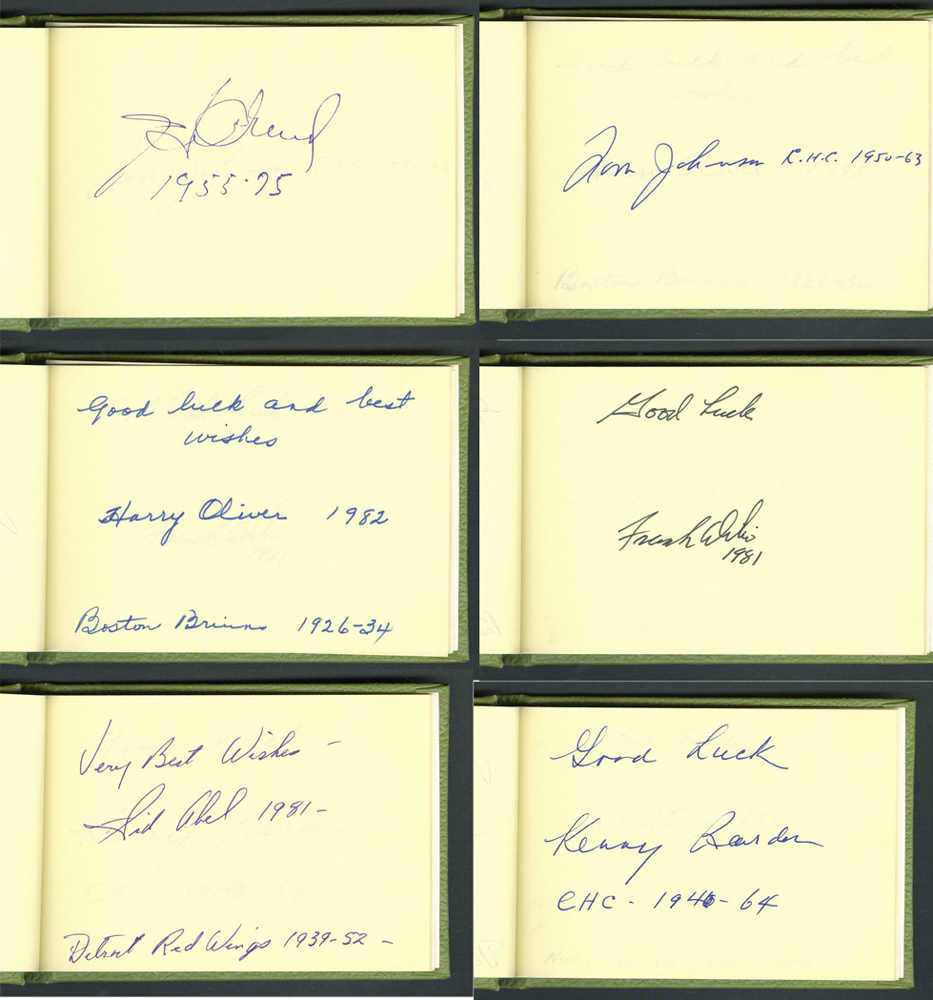 1955-75
Tom Johnson C.H.C. 1950-63
Good luck and best
wishes
Harry Oliver 1982
Boston Bruins 1926-34
Good Luck
Frank
1981
Very Best Wishes -
Sid Abel 1981 -
Detroit Red Wings 1939-52 -
Good Luck
Kenny Reardon
CHC - 1940-64